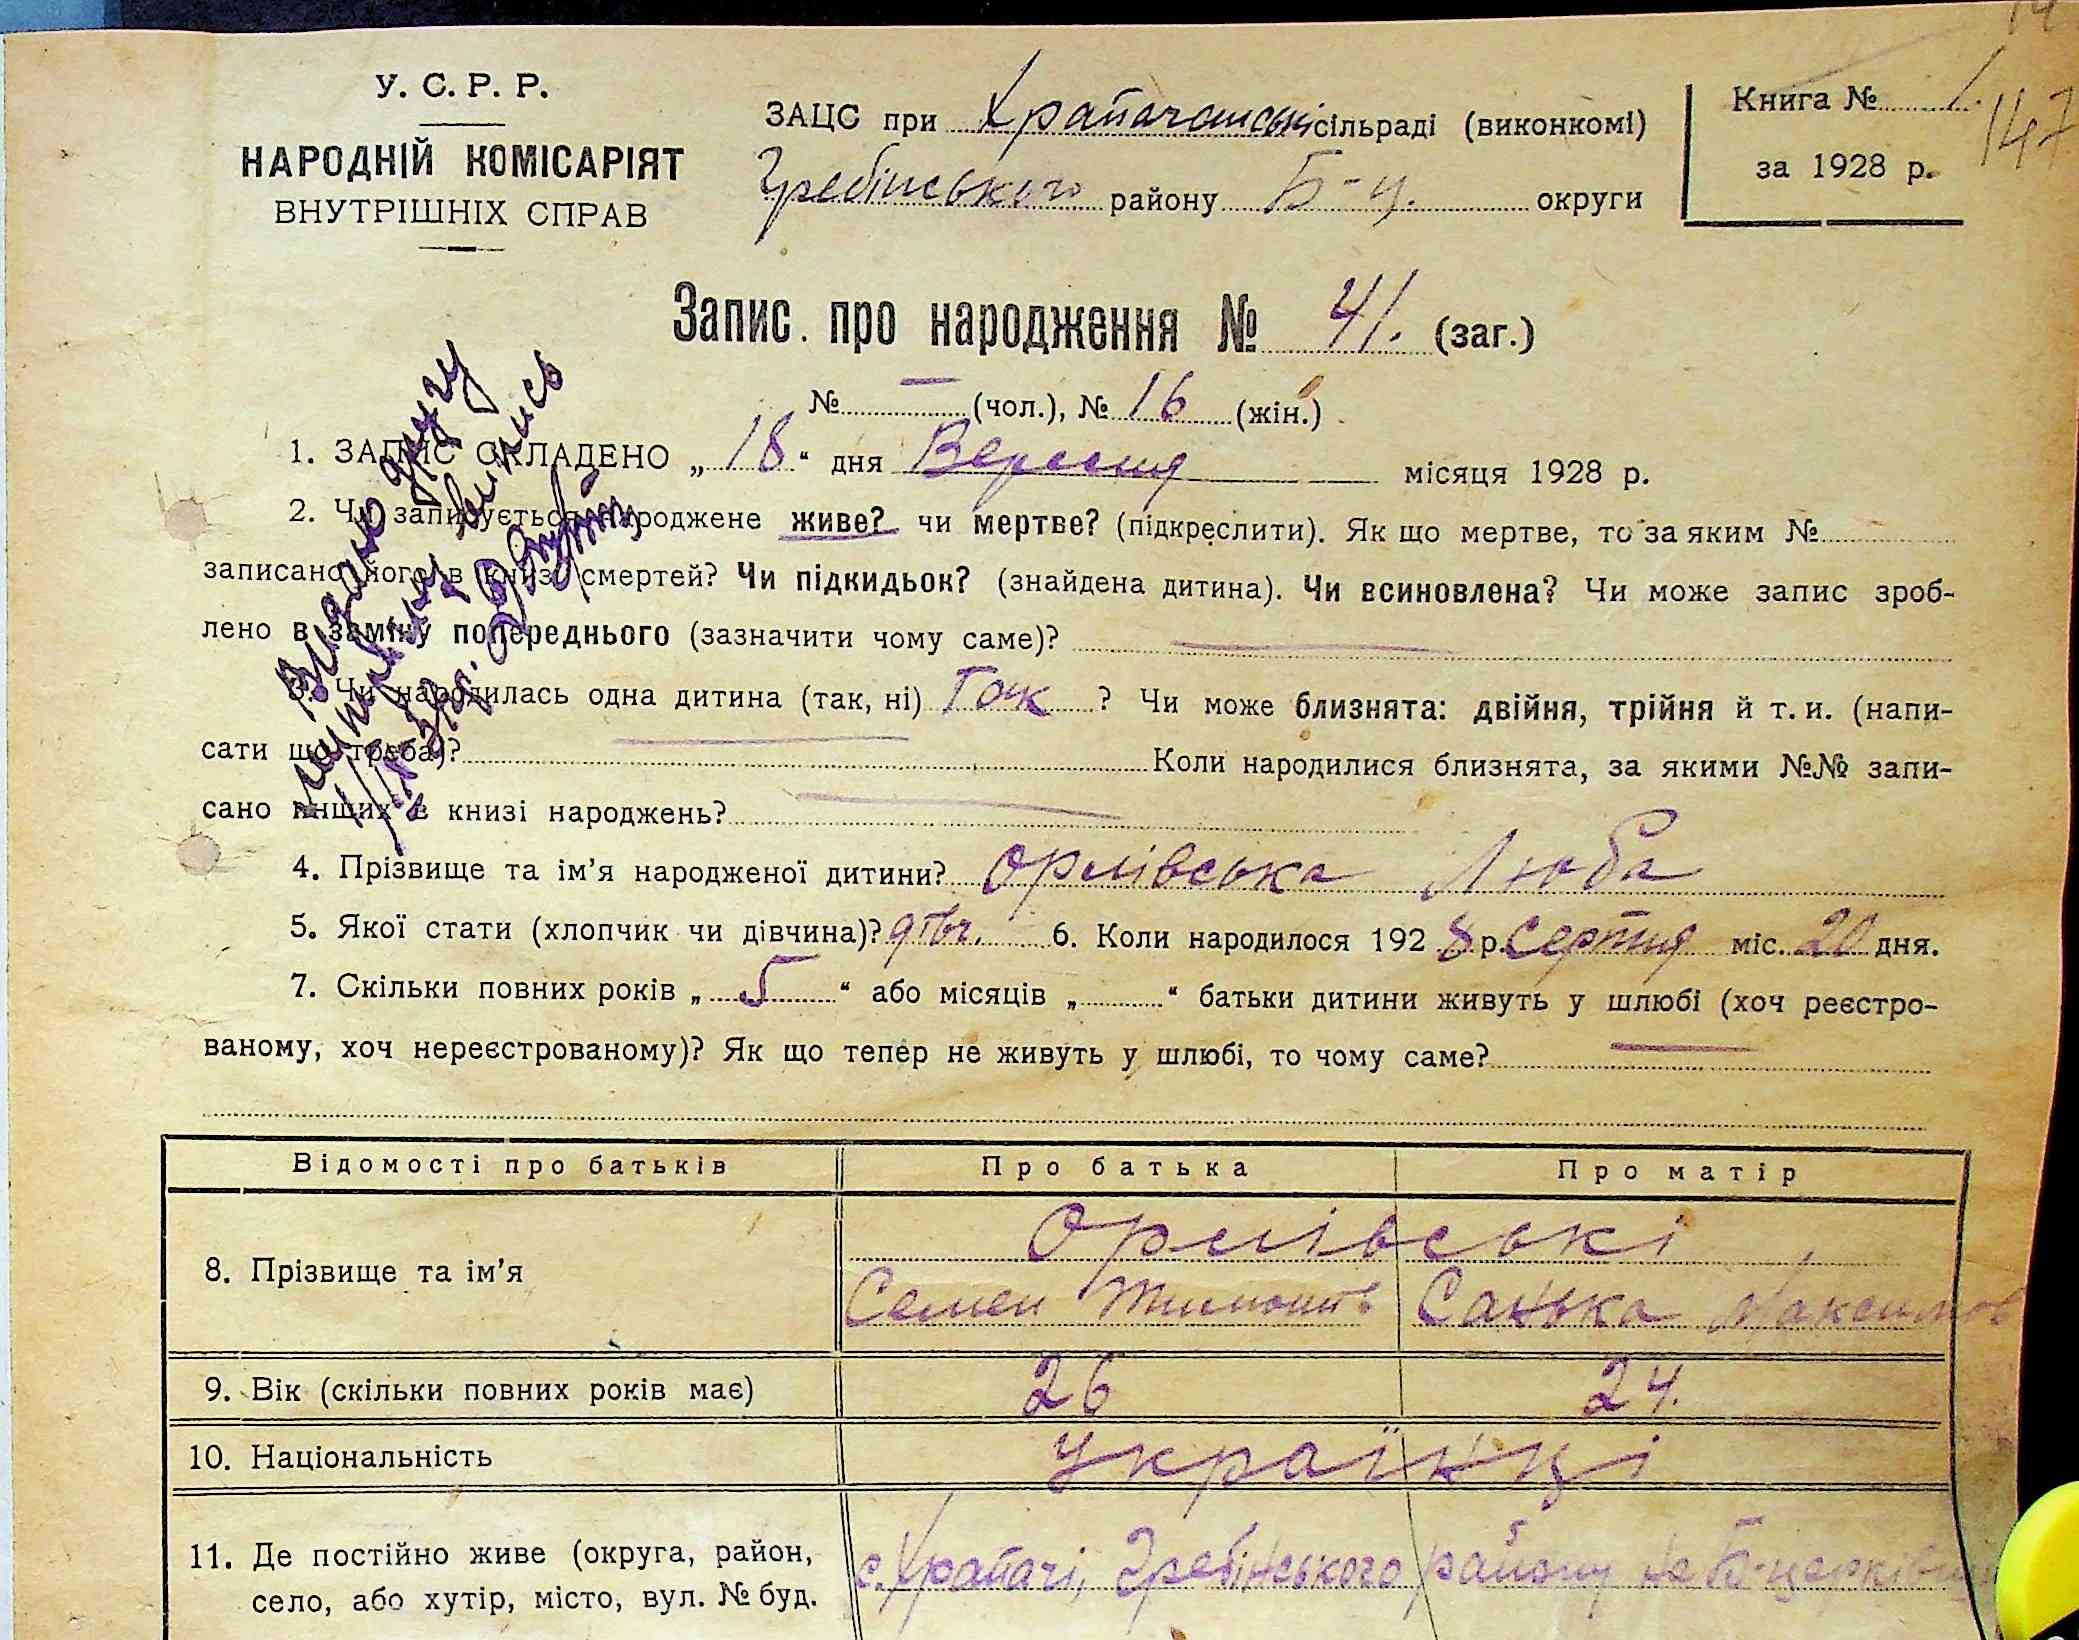 У. С. Р. Р.
НАРОДНІЙ КОМІСАРІЯТ
ВНУТРІШНІХ СПРАВ
ЗАЦС при Храпачанській сільраді (виконкомі)
Гребінського району Б-ц. округи
Книга № 1.
за 1928 р.
147
Запис про народження № 41. (заг.)
№ — (чол.), № 16 (жін.)
1. ЗАПИС СКЛАДЕНО „18“ дня Вересня місяця 1928 р.
2. Чи записується народжене живе? чи мертве? (підкреслити). Як що мертве, то за яким №
записано його в книзі смертей? Чи підкидьок? (знайдена дитина). Чи всиновлена? Чи може запис зроб-
лено в заміну попереднього (зазначити чому саме)? —
3. Чи народилась одна дитина (так, ні) Так ? Чи може близнята: двійня, трійня й т. и. (напи-
сати що треба)? — Коли народилися близнята, за якими №№ запи-
сано інших в книзі народжень? —
Видано другу
випись
4. Прізвище та ім’я народженої дитини? Орлівська Люба
5. Якої стати (хлопчик чи дівчина)? дівч. 6. Коли народилося 1928 р. Серпня міс. 20 дня.
7. Скільки повних років „5“ або місяців „ “ батьки дитини живуть у шлюбі (хоч реєстро-
ваному, хоч нереєстрованому)? Як що тепер не живуть у шлюбі, то чому саме? —
Відомості про батьків Про батька Про матір
8. Прізвище та ім’я Орлівські
Семен Тимошів Санька Максимов
9. Вік (скільки повних років має) 26 24.
10. Національність Українці
11. Де постійно живе (округа, район, с. Храпачі, Гребінського району на Б-церківщ
село, або хутір, місто, вул. № буд.